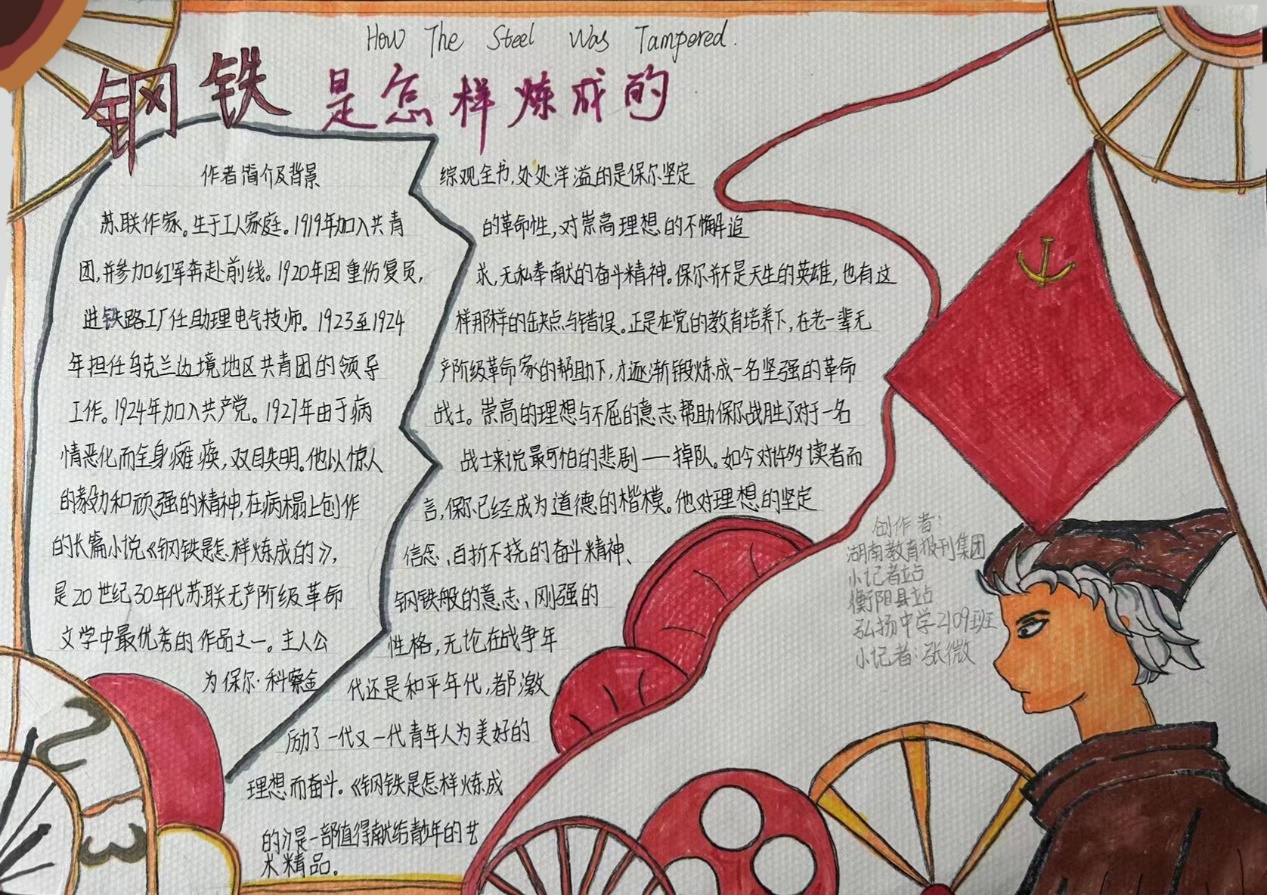 How The Steel Was Tampered.
钢铁是怎样炼成的
作者简介及背景
苏联作家。生于工人家庭。1919年加入共青
团,并参加红军奔赴前线。1920年因重伤复员,
进铁路工厂任助理电气技师。1923至1924
年担任乌克兰边境地区共青团的领导
工作。1924年加入共产党。1927年由于病
情恶化而全身瘫痪,双目失明。他以惊人
的毅力和顽强的精神,在病榻上创作
的长篇小说《钢铁是怎样炼成的》,
是20世纪30年代苏联无产阶级革命
文学中最优秀的作品之一。主人公
为保尔·柯察金
综观全书,处处洋溢的是保尔坚定
的革命性,对崇高理想的不懈追
求,无私奉献的奋斗精神。保尔并不是天生的英雄,也有这
样那样的缺点与错误。正是在党的教育培养下,在老一辈无
产阶级革命家的帮助下,才逐渐锻炼成一名坚强的革命
战士。崇高的理想与不屈的意志帮助保尔战胜了对于一名
战士来说最可怕的悲剧——掉队。如今对许多读者而
言,保尔已经成为道德的楷模。他对理想的坚定
信念,百折不挠的奋斗精神、
钢铁般的意志、刚强的
性格,无论在战争年
代还是和平年代,都激
励了一代又一代青年人为美好的
理想而奋斗。《钢铁是怎样炼成
的》是一部值得献给青年的艺
术精品。
创作者:
湖南教育报刊集团
小记者站
衡阳县站
弘扬中学2109班
小记者:张微